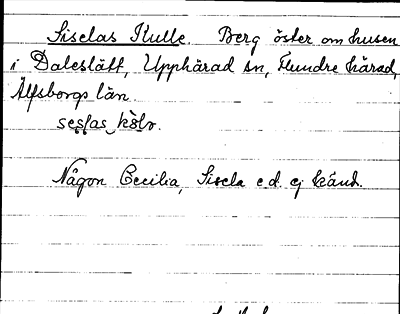 Siselas Kulle. Berg öster om husen
i Daleslätt, Upphärad sn, Flundre härad,
Älfsborgs län.
Någon Cecilia, Sisela e.d. ej känd.